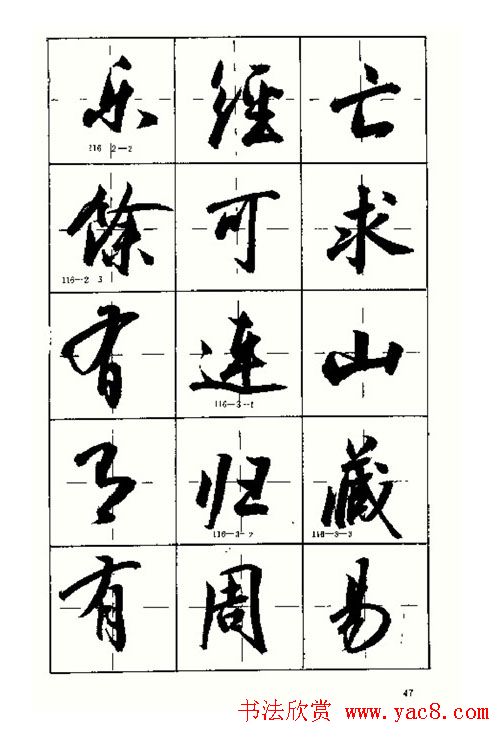 乐 經 亡
116 2-2
餘 可 求
116-2 3
有 連 山
116-3-1
有 归 藏
116-3-2 116-3-3
有 周 易
47
书法欣赏 www.yac8.com